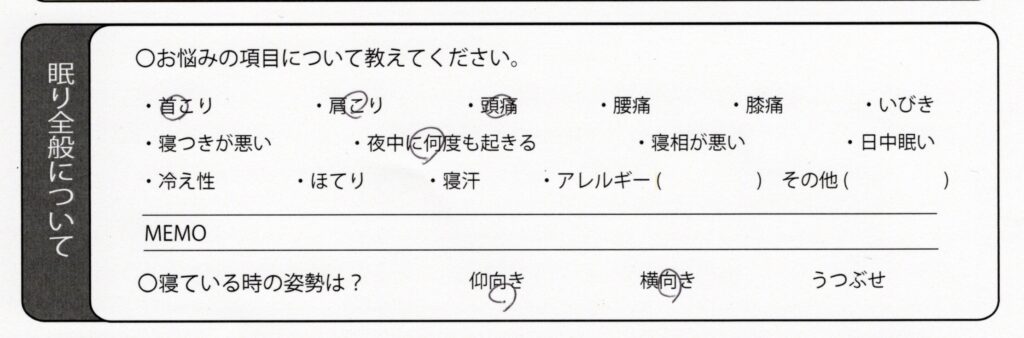 眠り全般について
〇お悩みの項目について教えてください。
・首こり ・肩こり ・頭痛 ・腰痛 ・膝痛 ・いびき
・寝つきが悪い ・夜中に何度も起きる ・寝相が悪い ・日中眠い
・冷え性 ・ほてり ・寝汗 ・アレルギー ( ) その他 ( )
MEMO
〇寝ている時の姿勢は？ 仰向き 横向き うつぶせ